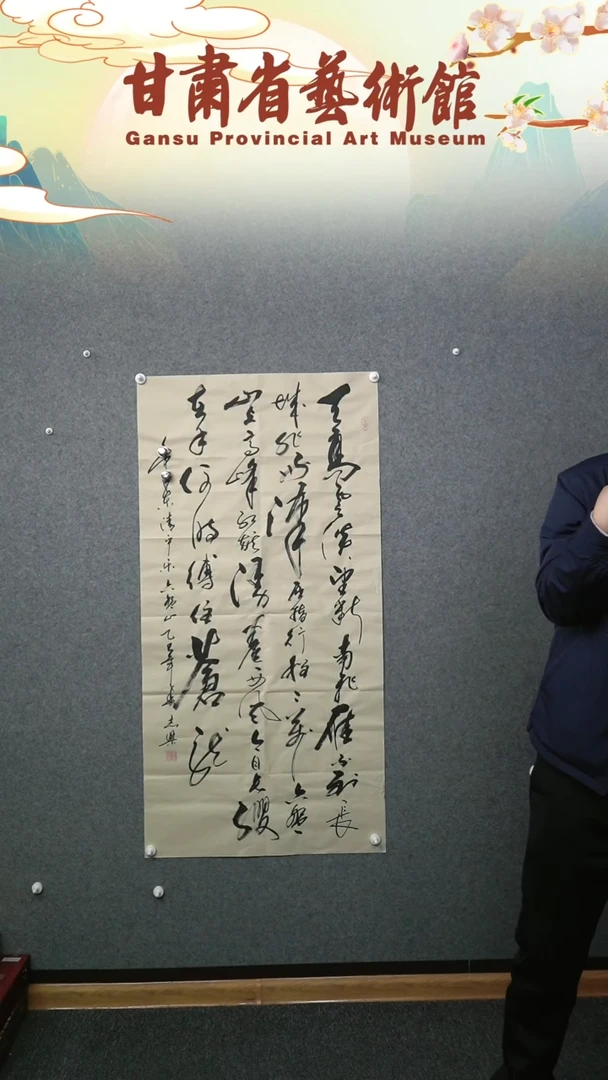 甘肅省藝術館
Gansu Provincial Art Museum
天高雲淡望斷南飛雁不到長
城非好漢屈指行程二萬六盤
山上高峰紅旗漫卷西風今日長纓
在手何時縛住蒼龍
東清平乐六盤山乙巳年